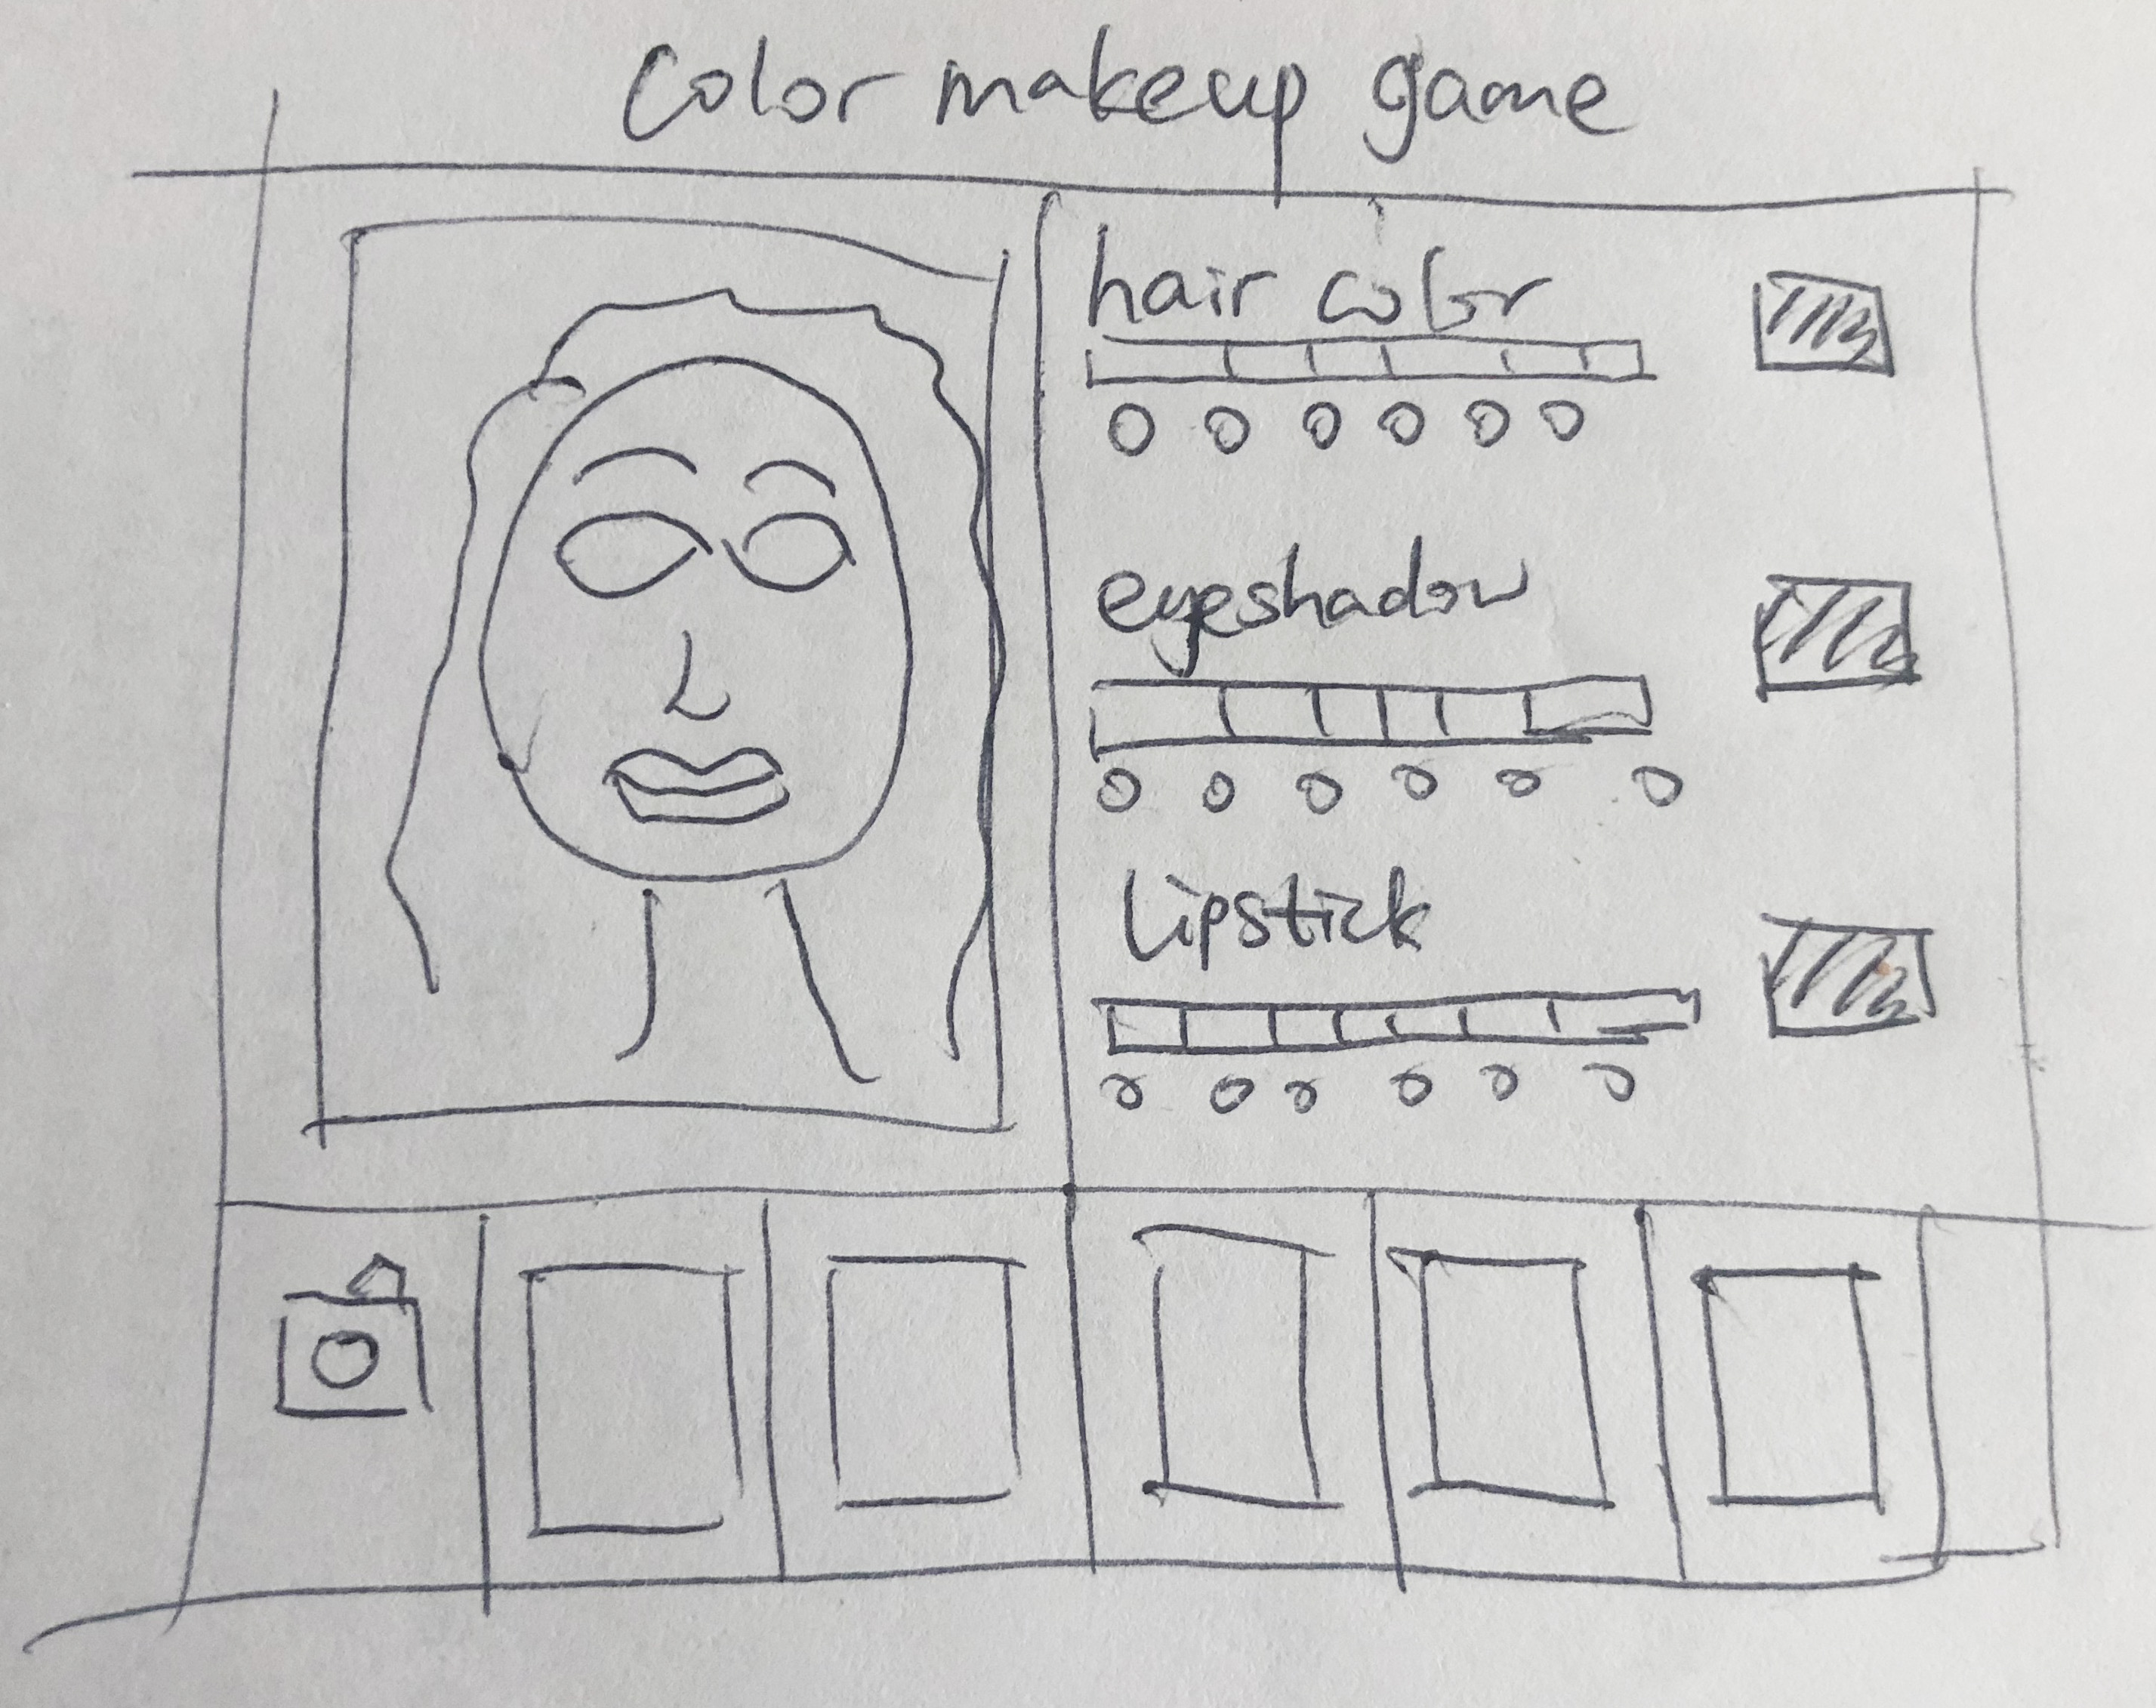 Color makeup game
hair color
eyeshadow
lipstick